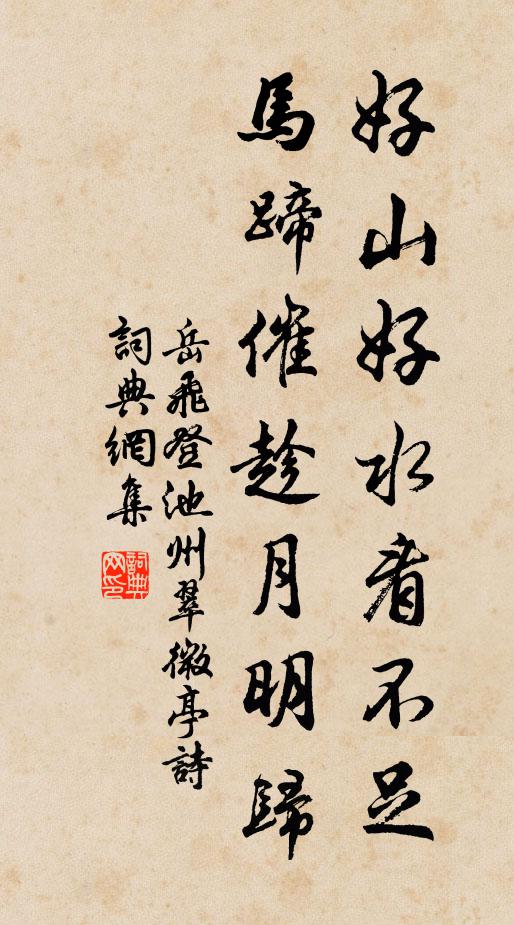 好山好水看不足
馬蹄催趁月明歸
岳飛登池州翠微亭詩
詞典網集
詞典
网印